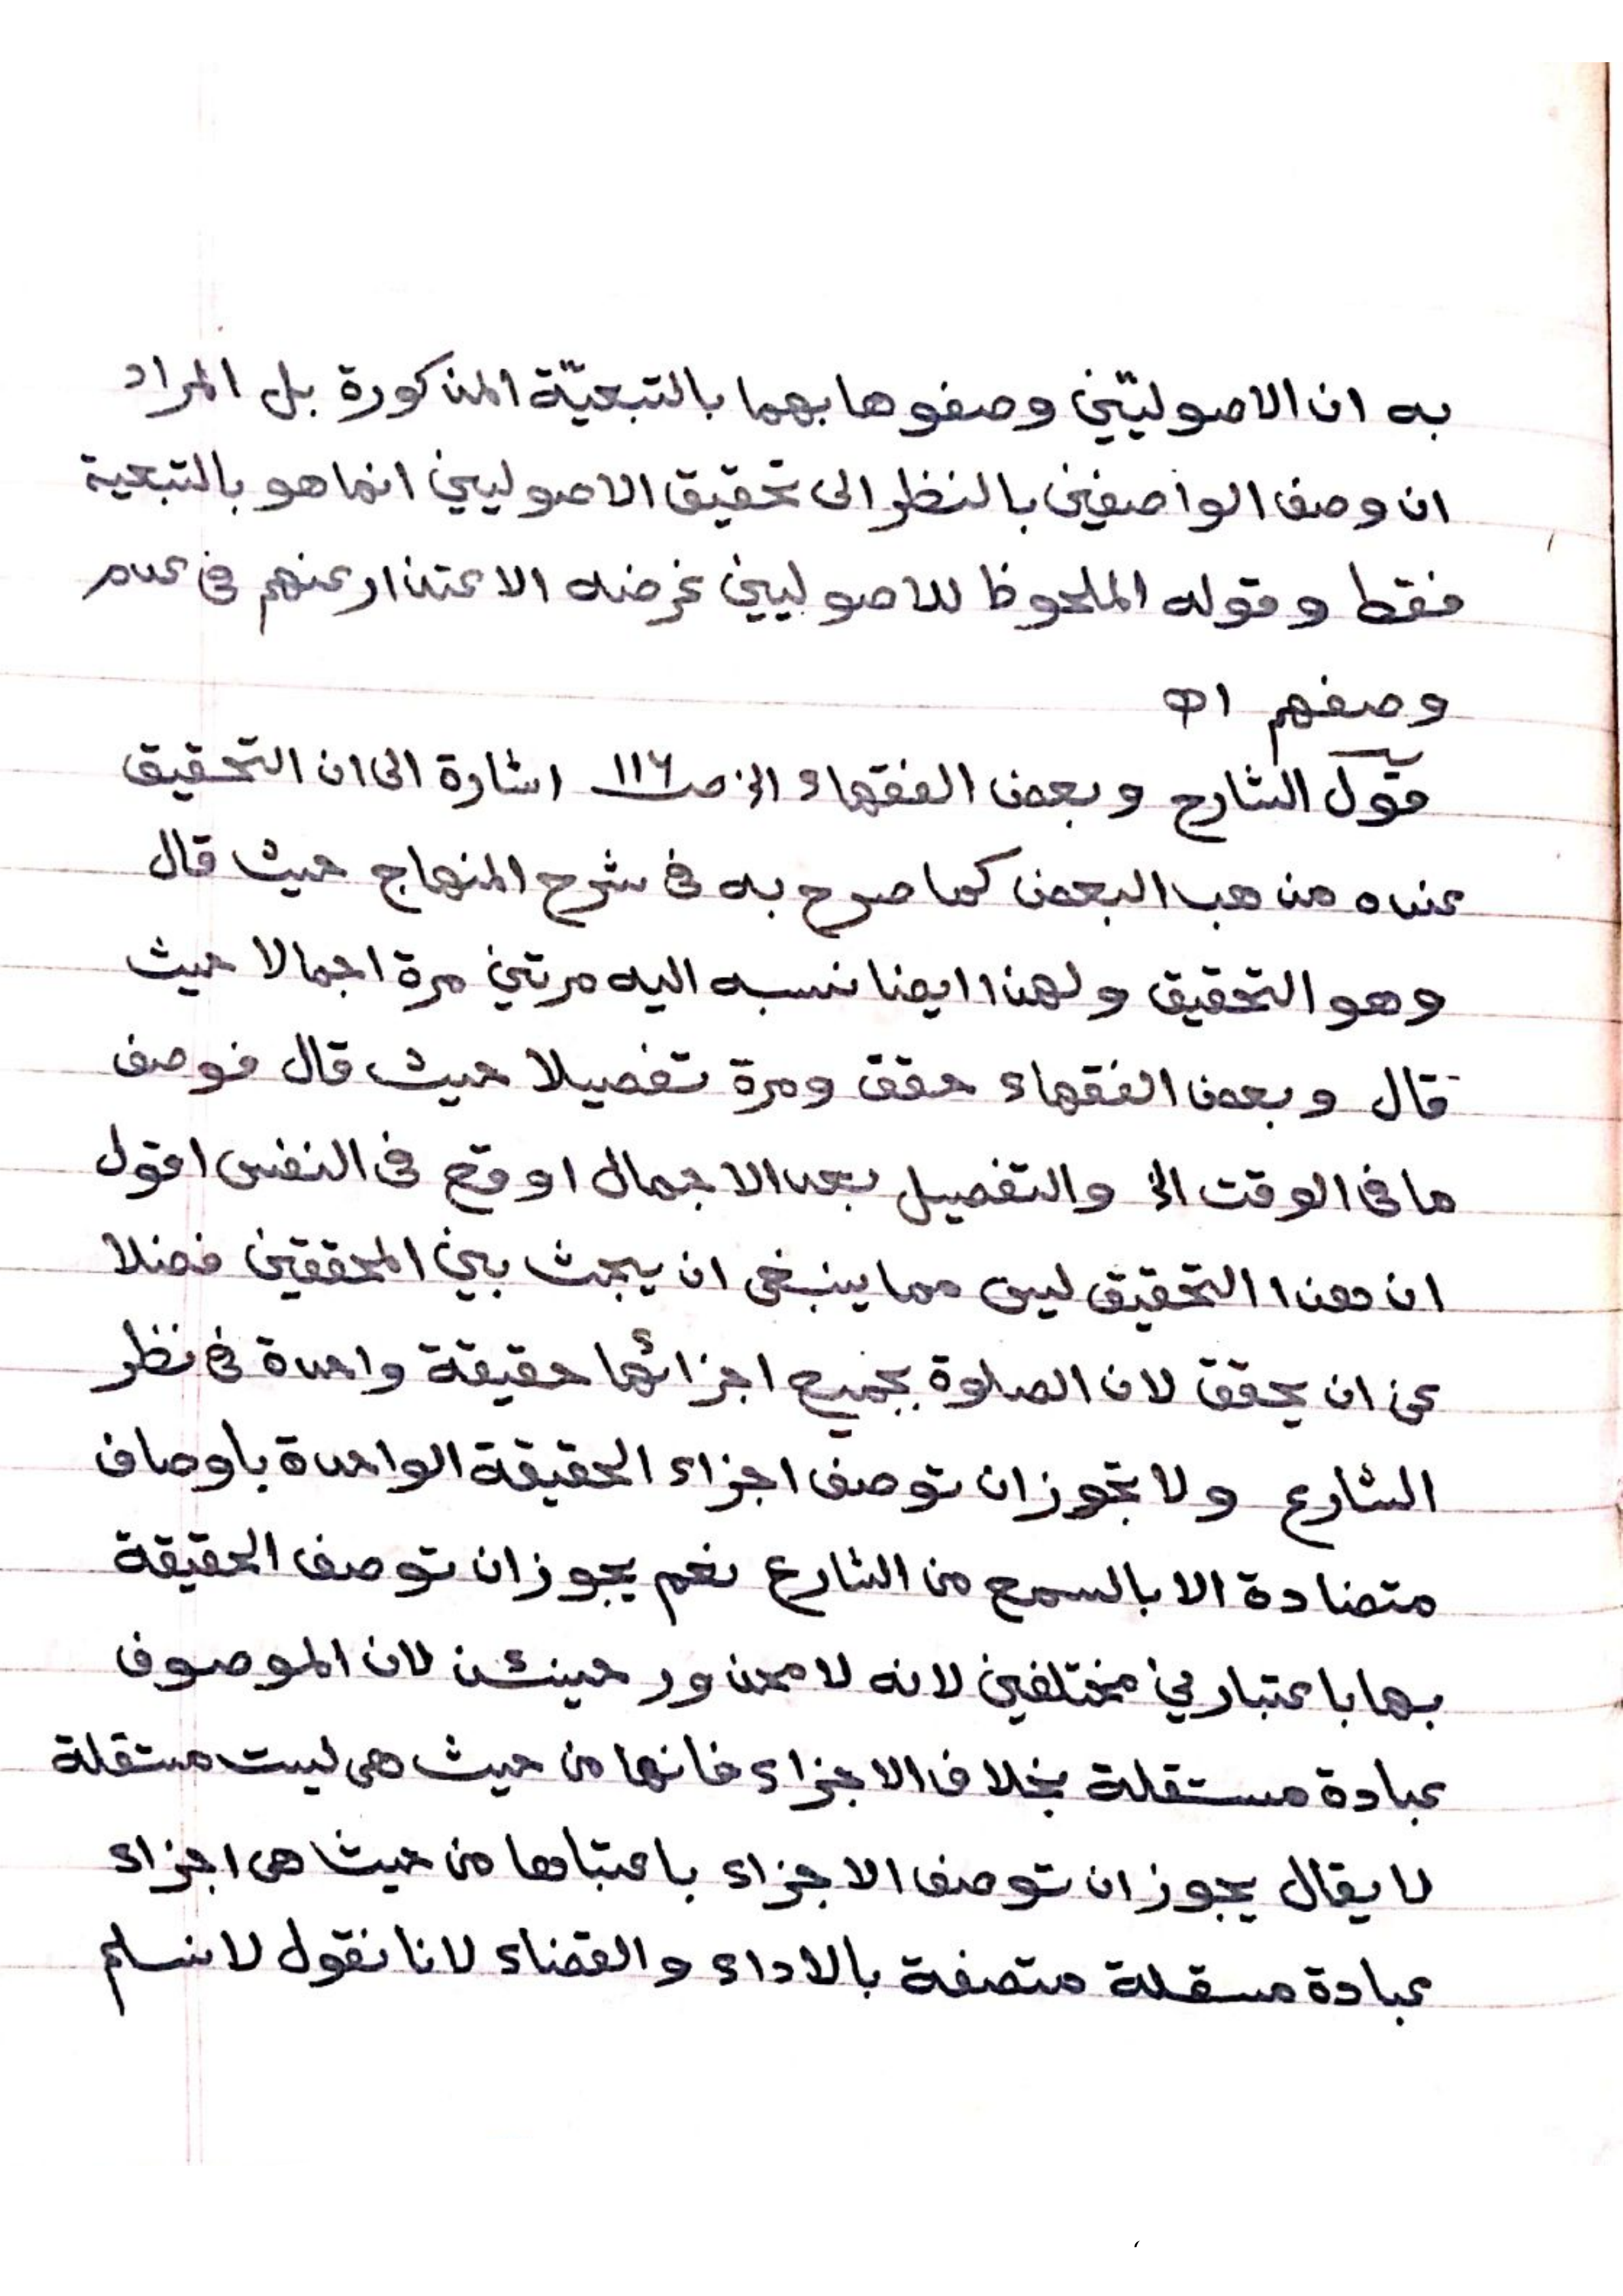 به ان الاصوليّين وصفوها بهما بالتبعيّة المذكورة بل المراد
ان وصف الواصفين بالنظر الى تحقيق الاصوليين انما هو بالتبعية
فقط وقوله الملحوظ للاصوليين غرضه الاعتذار عنهم فى عدم
وصفهم اه
قول الشارح وبعض الفقهاء الخ صـ١١٦ اشارة الى ان التحقيق
عنده مذهب البعض كما صرح به فى شرح المنهاج حيث قال
وهو التحقيق ولهذا ايضا نسبه اليه مرتين مرة اجمالا حيث
قال وبعض الفقهاء حقق ومرة تفصيلا حيث قال فوصف
ما فى الوقت الخ والتفصيل بعد الاجمال اوقع فى النفس اقول
ان هذا التحقيق ليس مما ينبغى ان يبحث بين المحققين فضلا
عن ان يحقق لان الصلوة بجميع اجزائها حقيقة واحدة فى نظر
الشارع ولا تجوز ان توصف اجزاء الحقيقة الواحدة باوصاف
متضادة الا بالسمع من الشارع نعم يجوز ان توصف الحقيقة
بها باعتبارين مختلفين لانه لا محذور حينئذ لان الموصوف
عبادة مستقلة بخلاف الاجزاء فانها من حيث هى ليست مستقلة
لا يقال يجوز ان توصف الاجزاء باعتبارها من حيث هى اجزاء
عبادة مسقلة متصفة بالاداء والقضاء لانا نقول لا نسلم